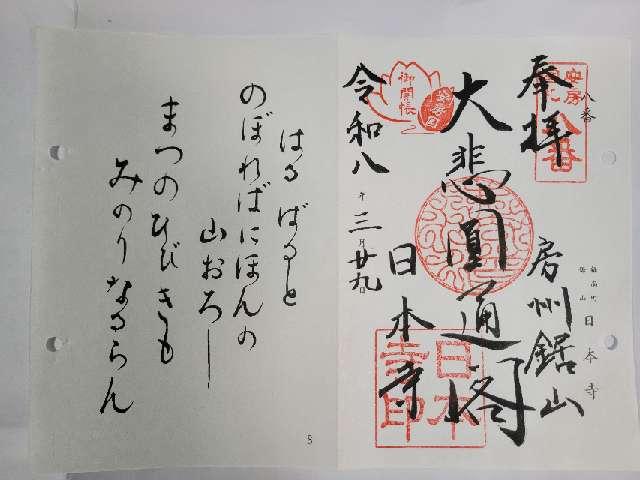 八番
奉拝
安房
八番
鋸南町
鋸山
日本寺
房州鋸山
大悲圓通閣
日本寺
日本寺印
御開帳
安房国
令和八年三月廿九
はるばると
のぼればにほんの
山おろし
まつのひびきも
みのりなるらん
5